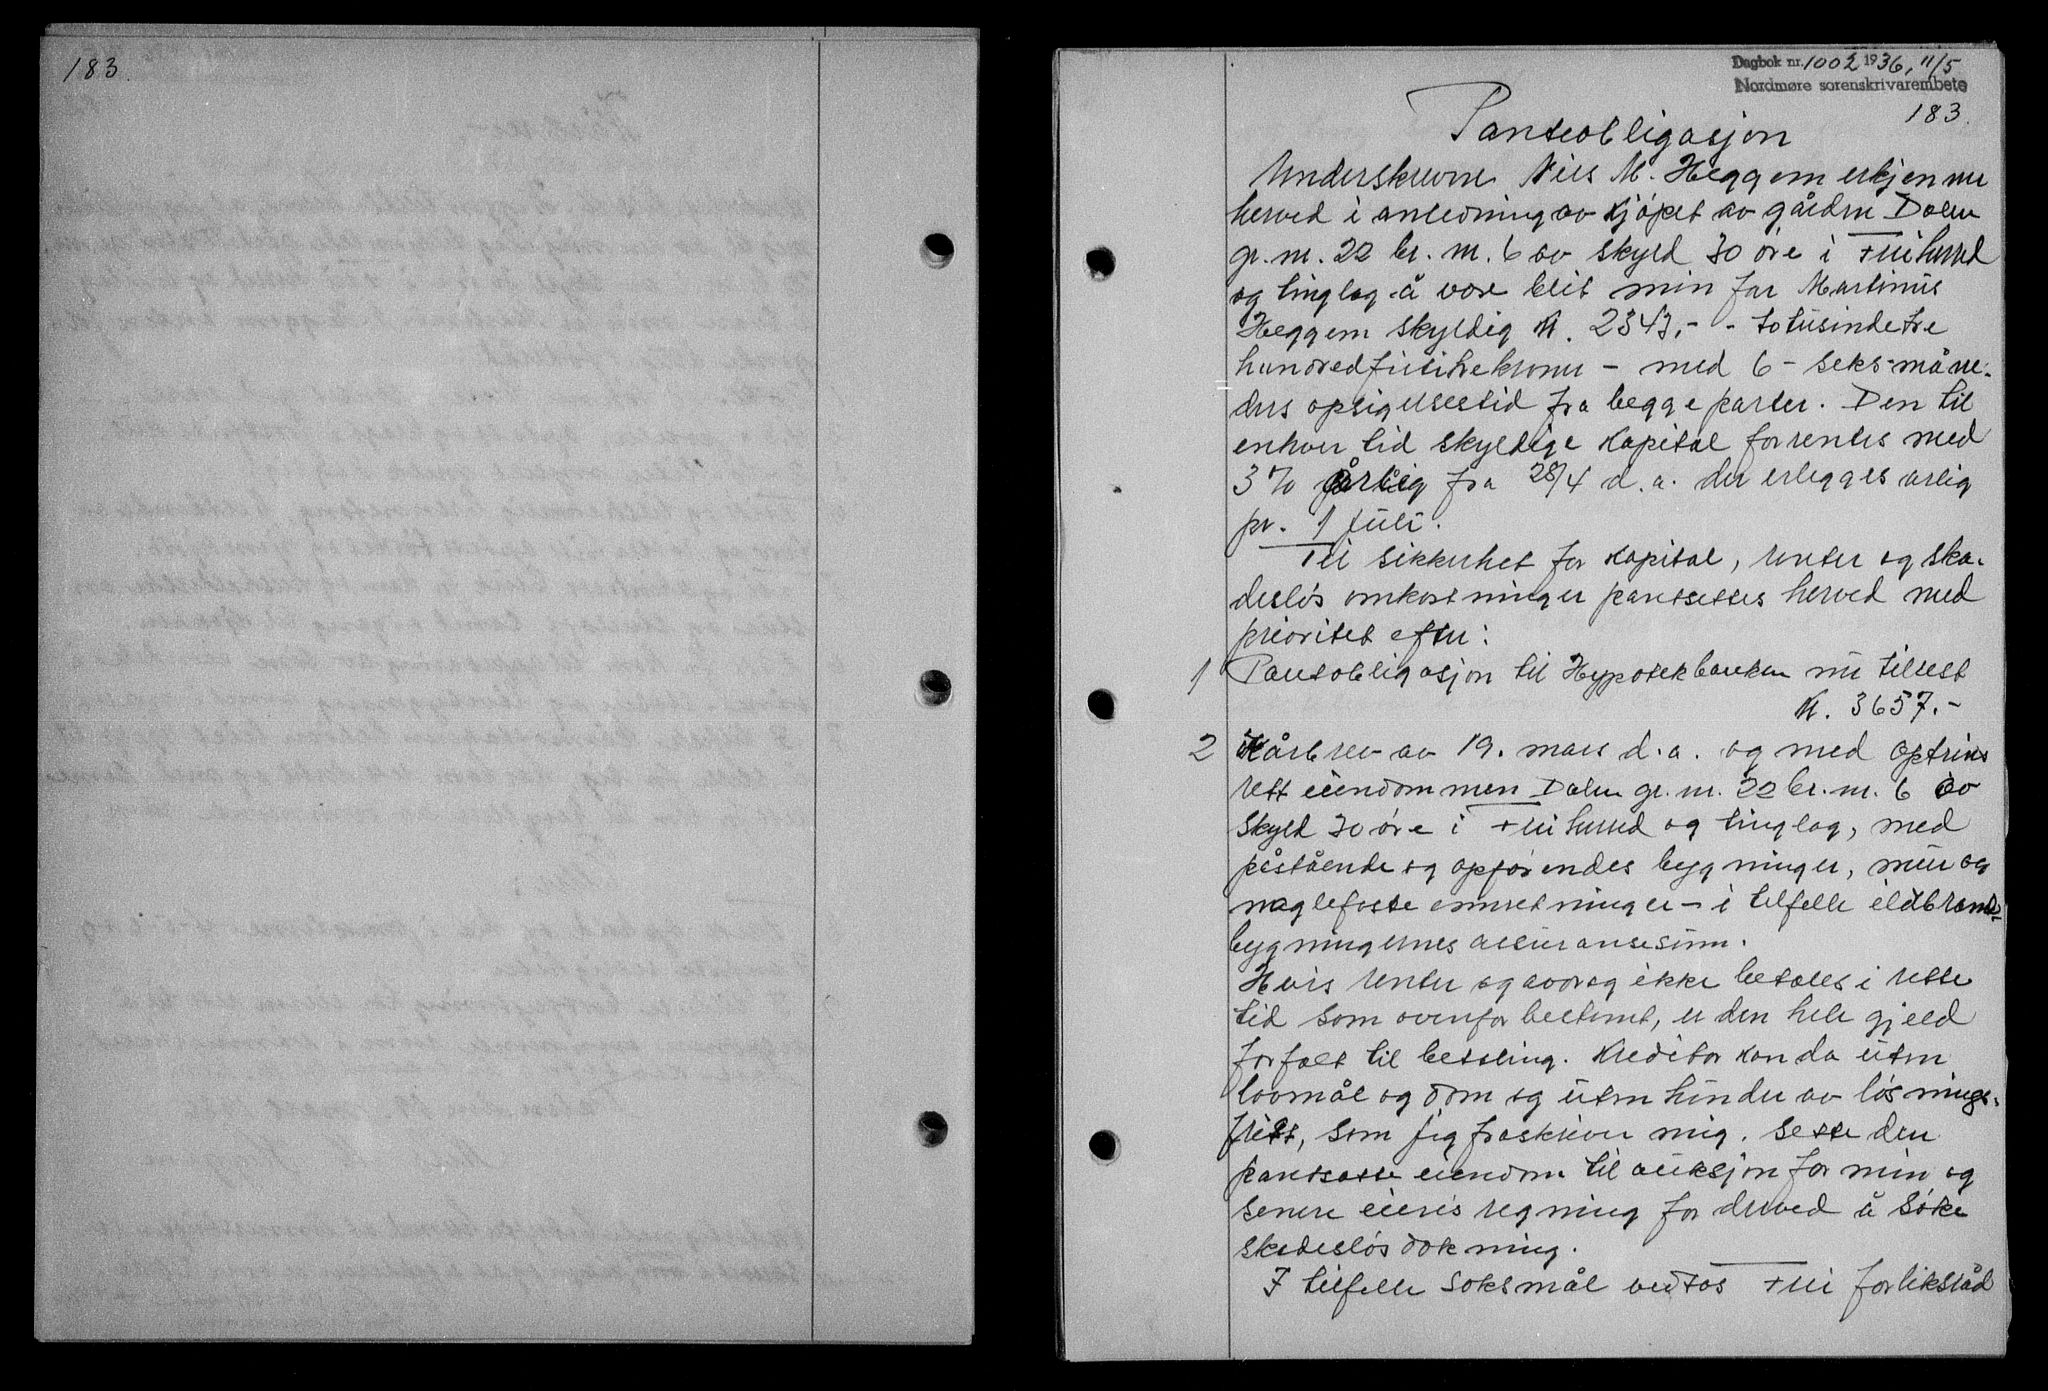 183.
Dagbok nr. 1002 1936, 11/5
Nordmøre sorenskrivarembete
183.
Panteobligasjon
Underskrevne Nils M. Heggem erkjenner
herved i anledning av kjøpet av gården Dalen
gr. nr. 22 br. nr. 6 av skyld 30 øre i Frei herred
og tinglag å være blit min far Martinus
Heggem skyldig kr. 2343,- - totusindetre
hundredfirtitrekroner - med 6 - seks-måne-
ders opsigelsestid fra begge parter. Den til
enhver tid skyldige kapital forrentes med
3 % årlig fra 28/4 d. a. der erlegges årlig
pr. 1 juli.
Til sikkerhet for kapital, renter og ska-
desløs omkostninger pantsettes herved med
prioritet efter:
1 Pantobligasjon til Hypotekbanken nu tilrest
kr. 3657.-
2 Kårbrev av 19. mars d. a. og med optrins
rett eiendommen Dalen gr. nr. 22 br. nr. 6 av
skyld 30 øre i Frei herred og tinglag, med
påstående og opførendes bygninger, mur og
naglefaste innretninger - i tilfelle ildbrand-
bygningernes assuransesum.
Hvis renter og avdrag ikke betales i rette
tid som ovenfor bestemt, er den hele gjeld
forfalt til betaling. Kreditor kan da uten
lovmål og dom og uten hinder av løsnings-
frist, som jeg fraskriver mig. sette den
pantsatte eiendom til auksjon for min og
senere eieres regning for derved å søke
skadesløs dekning.
I tilfelle søksmål vedtas Frei forliksråd